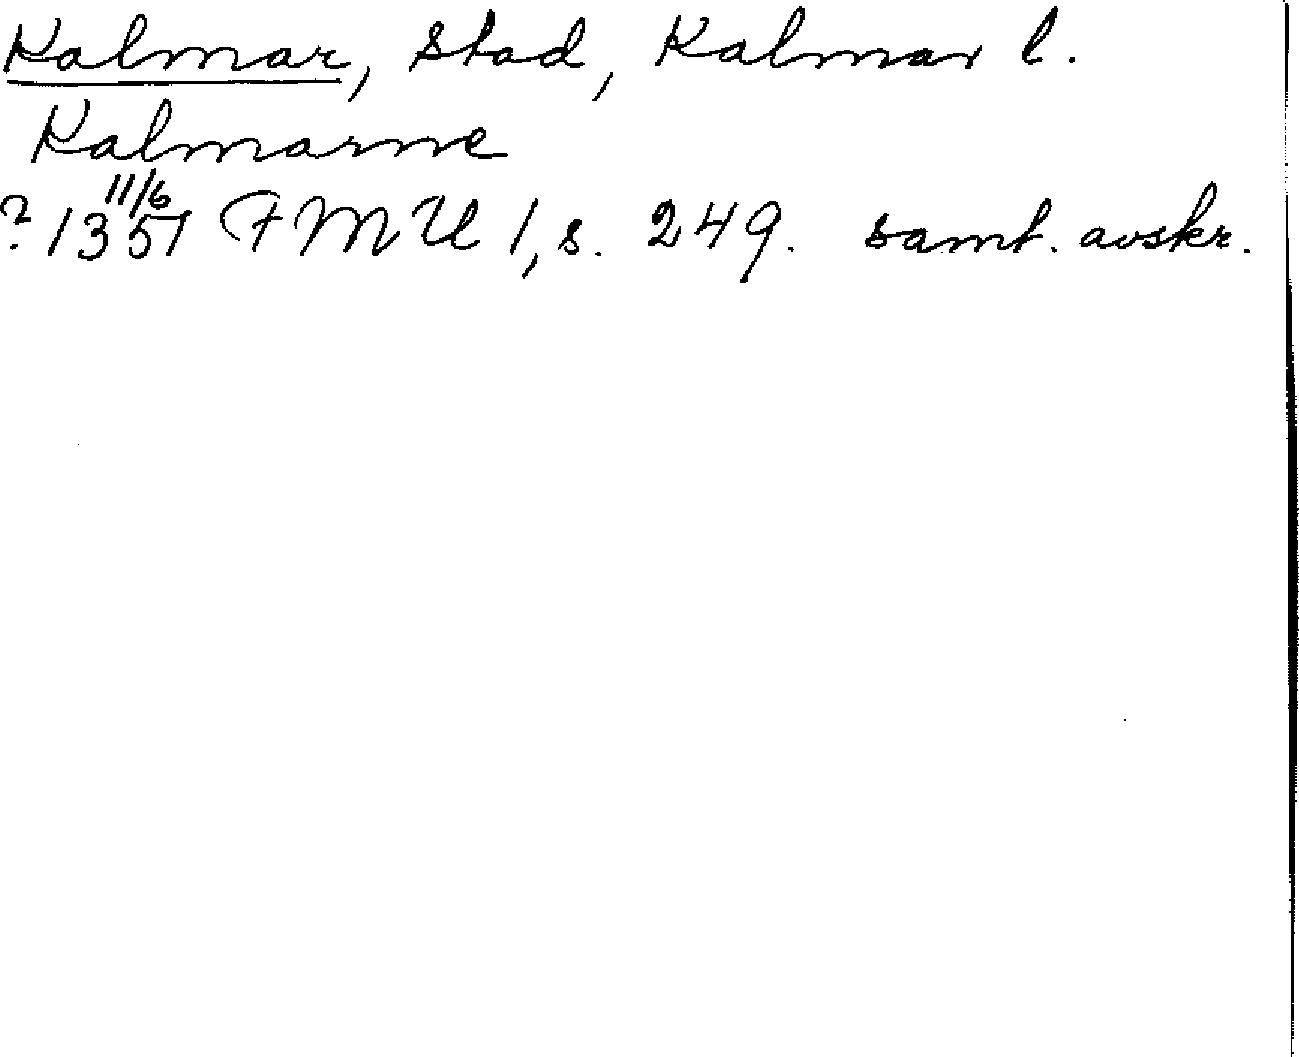 Kalmar, stad, Kalmar l.
Kalmarne
11/6
? 1351 FMU 1, s. 249. samt. avskr.